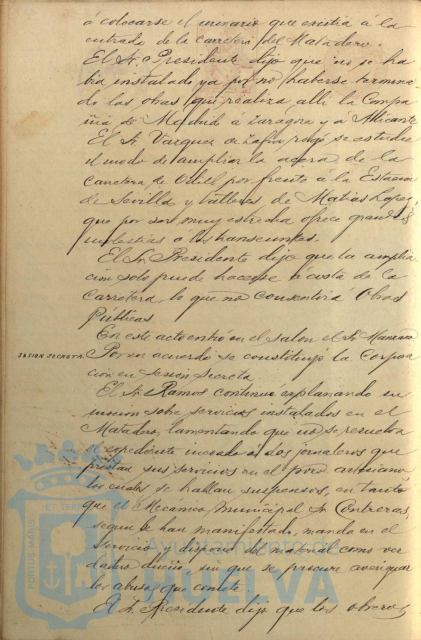 á colocarse el urinario que existia á la
entrada de la carretera del Matadero.
El Sr. Presidente dijo que no se ha
bia instalado ya por no haberse termina
do las obras que realiza allí la Compa
ñia de Madrid á Zaragoza y á Alicante
El Sr. Vazquez de Zafra rogó se estudie
el modo de ampliar la acera de la
carretera de Odiel por frente á la Estacion
de Sevilla y talleres de Matias Lopez,
que por ser muy estrecha ofrece grandes
molestias a los transeuntes.
El Sr. Presidente dijo que la amplia
cion solo puede hacerse a costa de la
Carretera, lo que no consentirá Obras
Públicas
En este acto entró en el salon el Sr. Manzano
SESION SECRETA
Por un acuerdo se constituyó la Corpora
ción en sesion secreta
El Sr. Ramos continuó explanando su
mocion sobre servicios instalados en el
Matadero, lamentando que no se resuelva
el expediente incoado a los jornaleros que
prestan sus servicios en el pozo artesiano
los cuales se hallan suspensos, en tanto
que el Mecanico Municipal Sr. Contreras,
segun le han manifestado, manda en el
servicio y dispone del material como ver
dadero dueño, sin que se procure averiguar
los abusos que comete.
El Sr. Presidente dijo que los obreros
PORTUS MARIS
ET TERRÆ
Ayuntamiento de
HUELVA